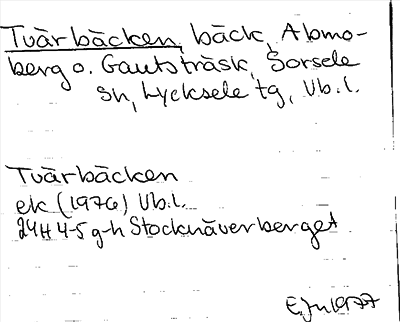 Tvärbäcken, bäck, Abmo-
berg o. Gautsträsk, Sorsele
sn, Lycksele tg, Vb.l.
Tvärbäcken
ek (1976) Vb.l.
24H 4-5 g-h Stocknäverberget
1977